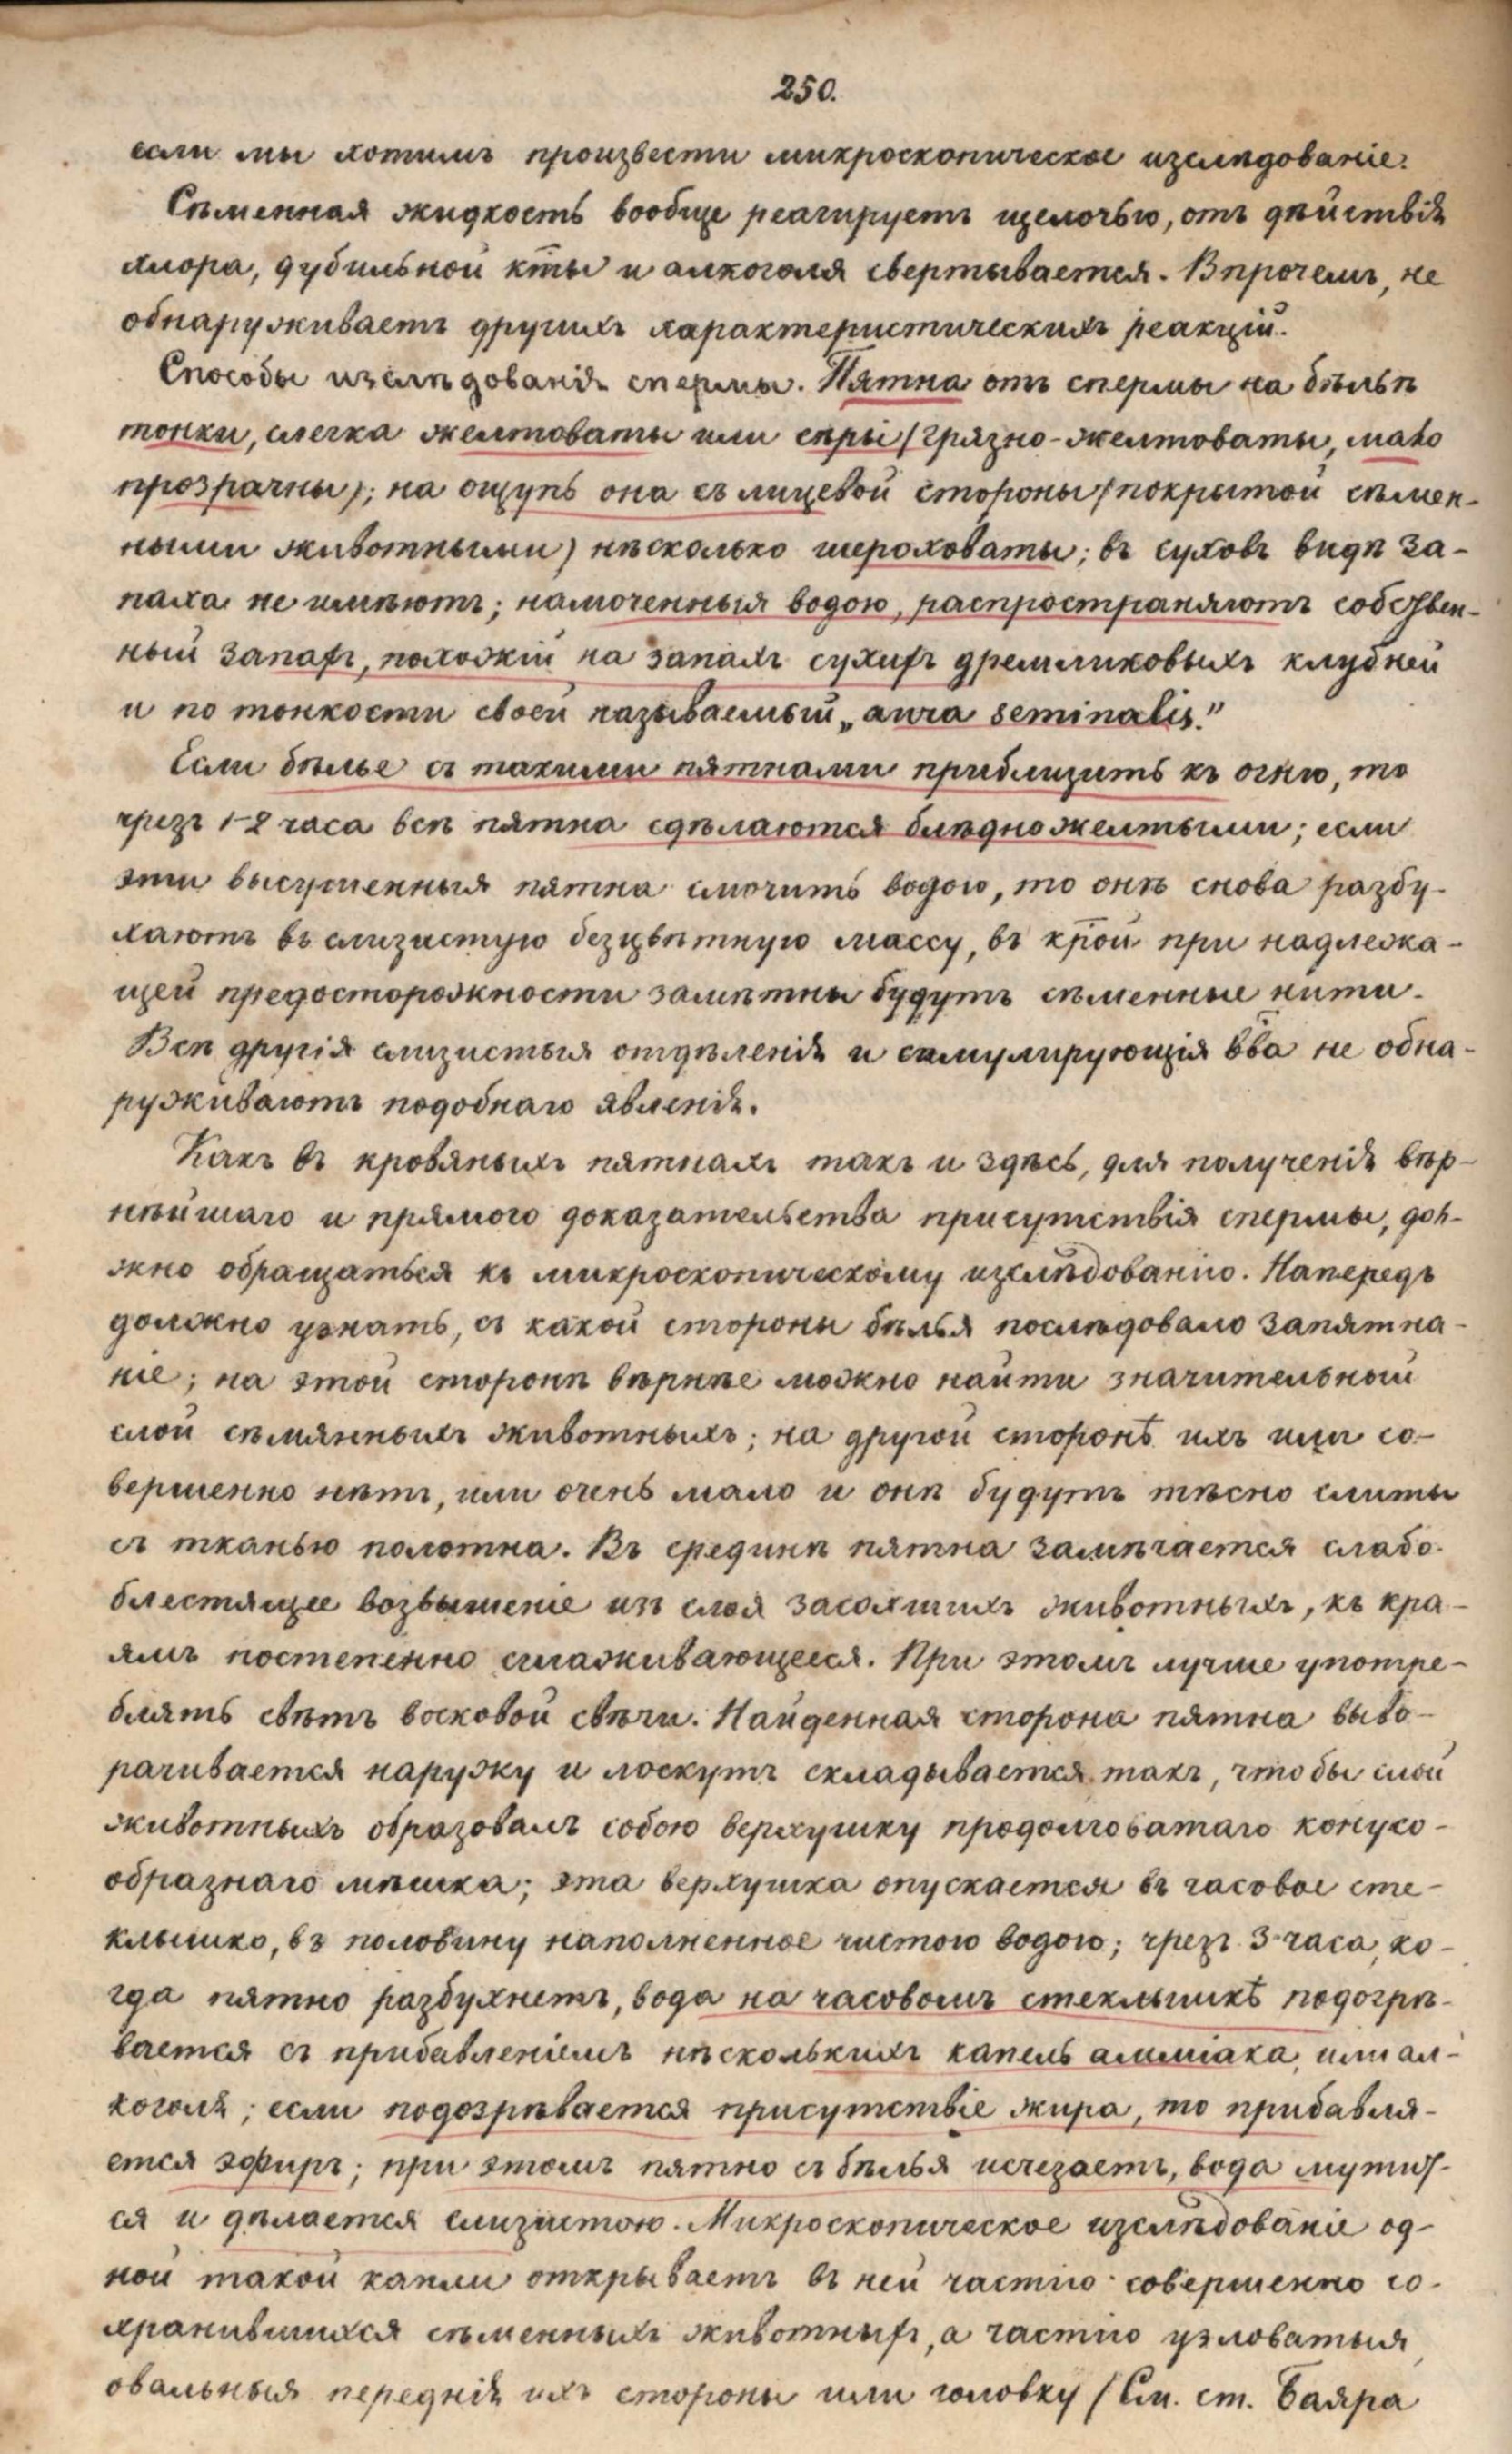 250.
если мы хотимъ произвести микроскопическое изслѣдованіе.
Сѣменная жидкость вообще реагируетъ щелочью, отъ дѣйствія
хлора, дубильной кты и алкоголя свертывается. Впрочемъ, не
обнаруживаетъ другихъ характеристическихъ реакцій.
Способы изслѣдованія спермы. Пятна отъ спермы на бѣльѣ
тонки, слегка желтоваты или сѣры (грязно-желтоваты, мало
прозрачны); на ощупь она съ лицевой стороны (покрытой сѣмен-
ными животными) нѣсколько шероховаты; въ сухомъ видѣ за-
паха не имѣютъ; намоченныя водою, распространяютъ собствен-
ный запахъ, похожій на запахъ сухихъ дремликовыхъ клубней
и по тонкости своей называемый „aura seminalis."
Если бѣлье съ такими пятнами приблизить къ огню, то
чрезъ 1-2 часа всѣ пятна сдѣлаются блѣдножелтыми; если
эти высушенныя пятна смочить водою, то онѣ снова разбу-
хаютъ въ слизистую безцвѣтную массу, въ крой при надлежа-
щей предосторожности замѣтны будутъ сѣменные нити.
Всѣ другія слизистыя отдѣленія и симулирующія вва не обна-
руживаютъ подобнаго явленія.
Какъ въ кровяныхъ пятнахъ такъ и здѣсь, для полученія вѣр-
нѣйшаго и прямого доказательства присутствія спермы, дол-
жно обращаться къ микроскопическому изслѣдованію. Напередъ
должно узнать, съ какой стороны бѣлья послѣдовало запятна-
ніе; на этой сторонѣ вѣрнѣе можно найти значительный
слой сѣмянныхъ животныхъ; на другой сторонѣ ихъ или со-
вершенно нѣтъ, или очень мало и онѣ будутъ тѣсно слиты
съ тканью полотна. Въ срединѣ пятна замѣчается слабо-
блестящее возвышеніе изъ слоя засохшихъ животныхъ, къ кра-
ямъ постепенно сглаживающееся. При этомъ лучше употре-
блять свѣтъ восковой свѣчи. Найденная сторона пятна выво-
рачивается наружу и лоскутъ складывается такъ, чтобы слой
животныхъ образовалъ собою верхушку продолговатаго конусо-
образнаго мѣшка; эта верхушка опускается въ часовое сте-
клышко, въ половину наполненное чистою водою; чрезъ 3 часа, ко-
гда пятно разбухнетъ, вода на часовомъ стеклышкѣ подогрѣ-
вается съ прибавленіемъ нѣсколькихъ капель амміака, или ал-
коголя; если подозрѣвается присутствіе жира, то прибавля-
ется эфиръ; при этомъ пятно съ бѣлья исчезаетъ, вода мутит-
ся и дѣлается слизистою. Микроскопическое изслѣдованіе од-
ной такой капли открываетъ въ ней частію совершенно со-
хранившихся сѣменныхъ животныхъ, а частію узловатыя,
овальныя переднія ихъ стороны или головку (См. ст. Баяра